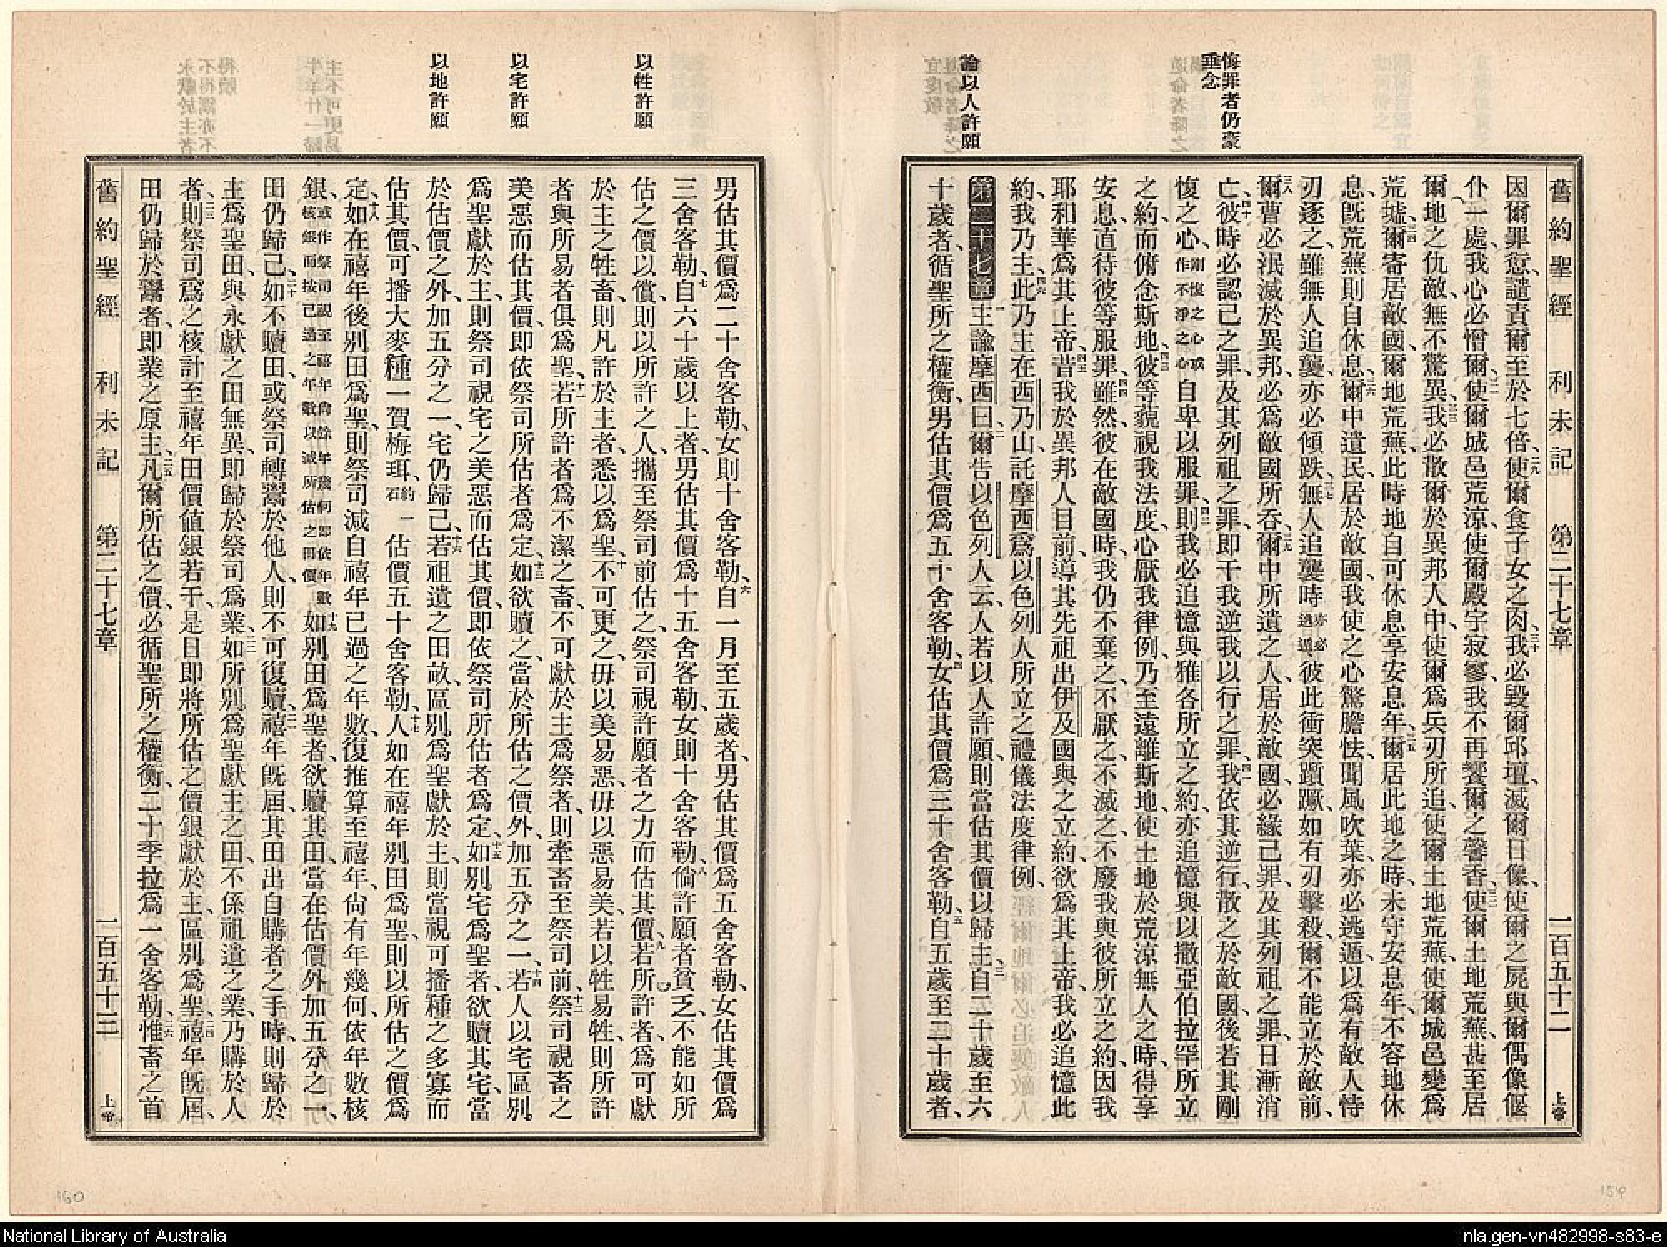 悔罪者仍蒙
垂念
諭以人許願
舊約聖經 利未記 第二十七章 一百五十二 上帝
因爾罪愆、譴責爾至於七倍、使爾食子女之肉、我必毀爾邱壇、滅爾日像、使爾之屍與爾偶像偃
仆一處、我心必憎爾、使爾城邑荒涼、使爾殿宇寂寥、我不再饗爾之馨香、使爾土地荒蕪、甚至居
爾地之仇敵、無不驚異、我必散爾於異邦人中、使爾爲兵刃所追、使爾土地荒蕪、使爾城邑變爲
荒墟、爾寄居敵國、爾地荒蕪、此時地自可休息享安息年、爾居此地之時、未守安息年、不容地休
息、既荒蕪則自休息、爾中遺民、居於敵國、我使之心驚膽怯、聞風吹葉、亦必逃遁、以爲有敵人恃
刃逐之、雖無人追襲、亦必傾跌、無人追襲時、彼此衝突躓蹶、如有刃擊殺、爾不能立於敵前、
爾曹必泯滅於異邦、必爲敵國所吞、爾中所遺之人、居於敵國、必緣己罪、及其列祖之罪、日漸消
亡、彼時必認己之罪、及其列祖之罪、即干我逆我以行之罪、我依其逆行、散之於敵國、後若其剛
愎之心、剛愎之心或作不淨之心自卑以服罪、則我必追憶與雅各所立之約、亦追憶與以撒亞伯拉罕所立
之約、而俯念斯地、彼等藐視我法度、心厭我律例、乃至遠離斯地、使土地於荒涼無人之時、得享
安息、直待彼等服罪、雖然、彼在敵國時、我仍不棄之、不厭之、不滅之、不廢我與彼所立之約、因我
耶和華爲其上帝、昔我於異邦人目前、導其先祖出伊及國、與之立約、欲爲其上帝、我必追憶此
約、我乃主、此乃主在西乃山、託摩西爲以色列人所立之禮儀法度律例、
第二十七章 主諭摩西曰、爾告以色列人云、人若以人許願、則當估其價以歸主、自二十歲至六
十歲者、循聖所之權衡、男估其價爲五十舍客勒、女估其價爲三十舍客勒、自五歲至二十歲者、
以牲許願
以宅許願
以地許願
男估其價爲二十舍客勒、女則十舍客勒、自一月至五歲者、男估其價爲五舍客勒、女估其價爲
三舍客勒、自六十歲以上者、男估其價爲十五舍客勒、女則十舍客勒、倘許願者貧乏、不能如所
估之價以償、則以所許之人、攜至祭司前估之、祭司視許願者之力而估其價、若所許者、爲可獻
於主之牲畜、則凡許於主者、悉以爲聖、不可更之、毋以美易惡、毋以惡易美、若以牲易牲、則所許
者與所易者俱爲聖、若所許者爲不潔之畜、不可獻於主爲祭者、則牽畜至祭司前、祭司視畜之
美惡而估其價、即依祭司所估者爲定、如欲贖之、當於所估之價外、加五分之一、若人以宅區別
爲聖獻於主、則祭司視宅之美惡而估其價、即依祭司所估者爲定、如別宅爲聖者、欲贖其宅、當
於估價之外、加五分之一、宅仍歸己、若祖遺之田畝、區別爲聖獻於主、則當視可播種之多寡而
估其價、可播大麥種一賀梅珥、約一石估價五十舍客勒、人如在禧年別田爲聖、則以所估之價爲
定、如在禧年後別田爲聖、則祭司減自禧年已過之年數、復推算至禧年、尚有年幾何、依年數核
銀、或作祭司視至禧年尚餘年幾何即依年數核銀而按已過之年數以減所估之田價如別田爲聖者、欲贖其田、當在估價外加五分之一、
田仍歸己、如不贖田、或祭司轉鬻於他人、則不可復贖、禧年既屆、其田出自購者之手時、則歸於
主爲聖田、與永獻之田無異、即歸於祭司爲業、如所別爲聖獻主之田、不係祖遺之業、乃購於人
者、則祭司爲之核計至禧年田價値銀若干、是日即將所估之價銀獻於主、區別爲聖、禧年既屆、
田仍歸於鬻者、即業之原主、凡爾所估之價、必循聖所之權衡、二十季拉爲一舍客勒、惟畜之首
舊約聖經 利未記 第二十七章 一百五十三 上帝
160
154
National Library of Australia
nla.gen-vn482998-s83-e